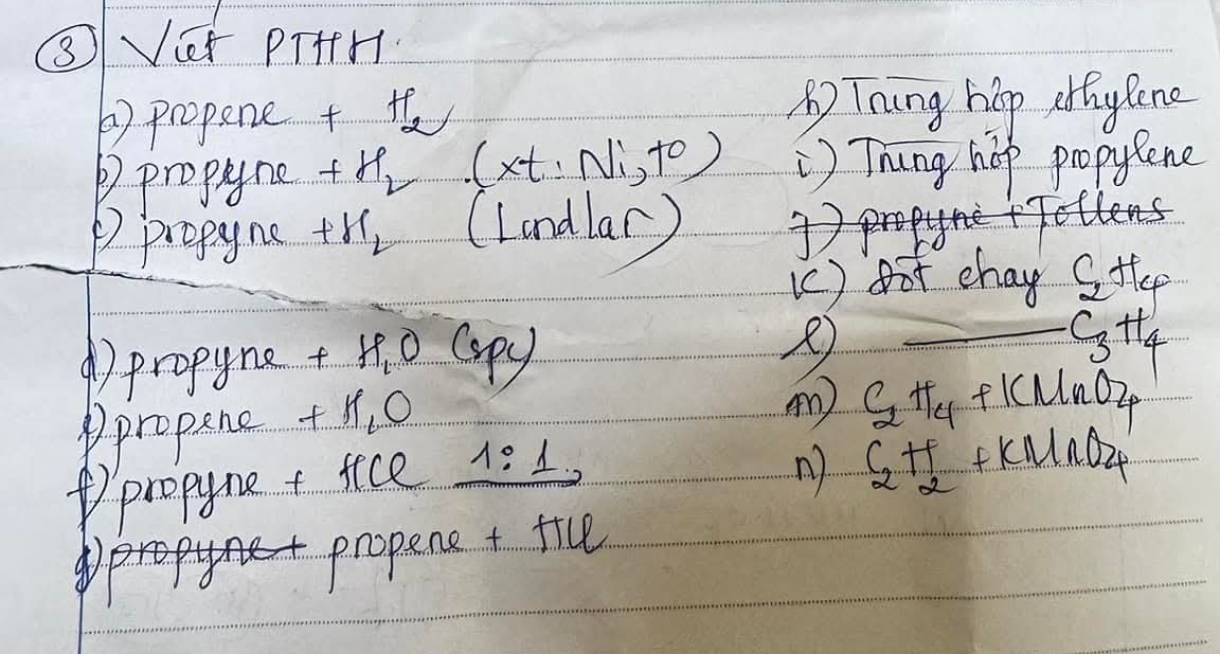 ③ Viết PTHH.
a) propene + H₂
b) propyne + H₂ (xt: Ni, t°)
c) propyne + H₂ (Lindlar)
d) propyne + H₂O (spc)
e) propene + H₂O
f) propyne + HCl 1:1
g) propyne + propene + HCl
h) Trùng hợp ethylene
i) Trùng hợp propylene
j) propyne + Tollens
k) đốt cháy C₂H₄
l) ——— C₃H₄
m) C₂H₄ + KMnO₄
n) C₂H₂ + KMnO₄